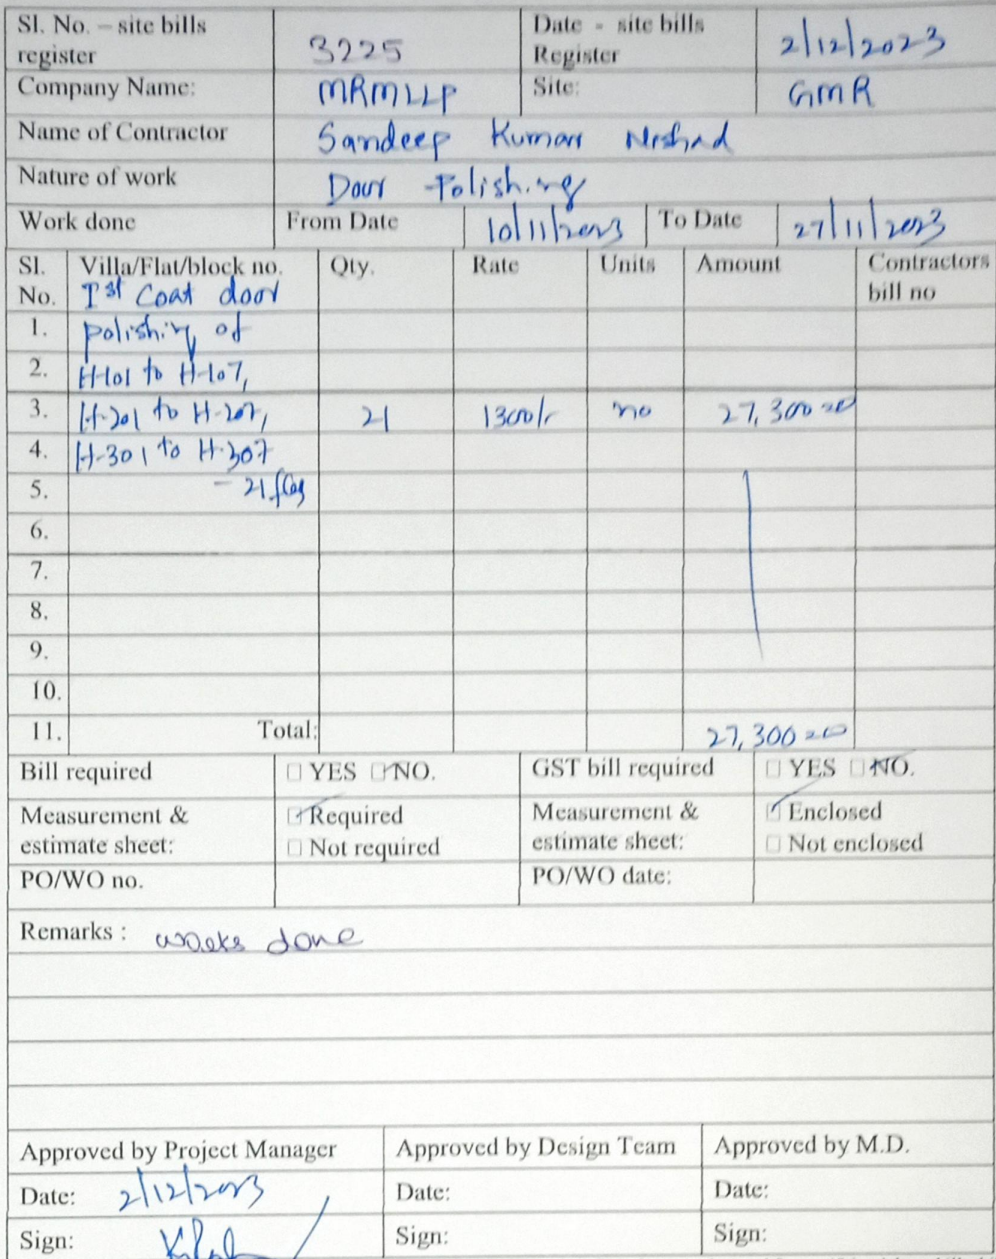 Sl. No. – site bills register 3225 Date - site bills Register 2/12/2023
Company Name: MRMLLP Site: GMR
Name of Contractor Sandeep Kumar Nishad
Nature of work Door Polishing
Work done From Date 10/11/2023 To Date 27/11/2023
Sl. No. Villa/Flat/block no. Qty. Rate Units Amount Contractors bill no
1st Coat door
1. polishing of
2. H-101 to H-107,
3. H-201 to H-207, 21 1300/- no 27,300=00
4. H-301 to H-307
5. - 21
6.
7.
8.
9.
10.
11. Total: 27,300=00
Bill required YES NO. GST bill required YES NO.
Measurement & estimate sheet: Required Measurement & estimate sheet: Enclosed
Not required Not enclosed
PO/WO no. PO/WO date:
Remarks : works done
Approved by Project Manager Approved by Design Team Approved by M.D.
Date: 2/12/2023 Date: Date:
Sign: Sign: Sign: